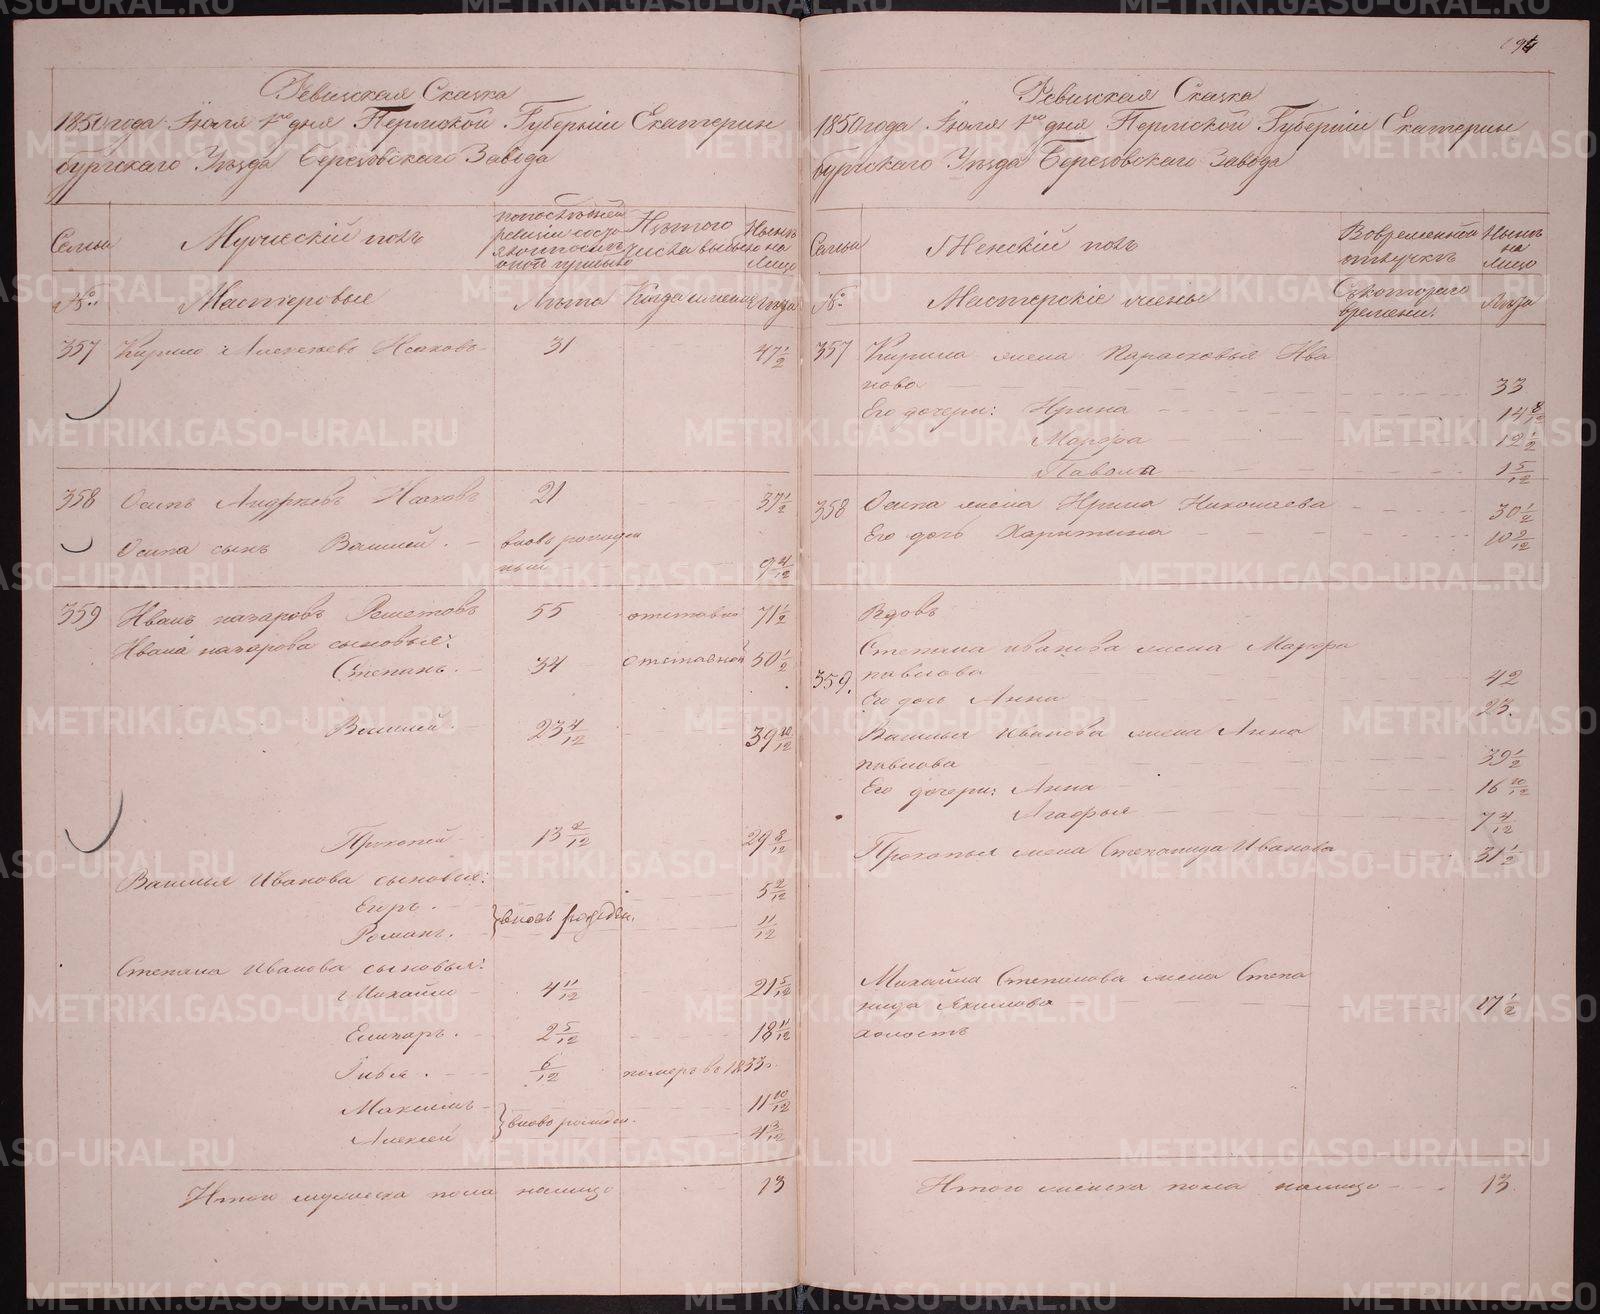 Ревизская Сказка
1850 года Июля 1го дня Пермской Губернiи Екатерин
бургскаго Уѣзда Березовскаго Завода
Семьи
Мужескiй полъ
По последней ревизiи состояло
Изъ того числа выбыло
Нынѣ на лицо
№
Мастеровые
Лѣта
Когда именно
Лѣта
357 Кирило Алексѣевъ Исаковъ 31 47 1/2
358 Осипъ Андреевъ Исаковъ 21 37 1/2
Осипа сынъ Василей вновь рожден
ный 9 4/12
359 Иванъ назаровъ Решетовъ 55 отставной 71 1/2
Ивана назарова сыновья:
Степанъ 34 отставной 50 1/2
Василей 23 4/12 39 10/12
Прокопей 13 2/12 29 8/12
Василья Иванова сыновья: 5 2/12
Егоръ
Романъ вновь рожден. 11/12
Степана Иванова сыновья:
Михайло 4 11/12 21 5/12
Елизаръ 2 5/12 18 11/12
Илья 6/12 померъ въ 1833
Максимъ 11 10/12
Алексей вновь рожден. 4 3/12
Итого мужеска пола налицо 13
Ревизская Сказка
1850 года Июля 1го дня Пермской Губернiи Екатерин
бургскаго Уѣзда Березовскаго Завода
Семьи
Женскiй полъ
Во временной отлучкѣ
Нынѣ на лицо
№
Мастерскiе жены
Съ котораго времени.
Лѣта
357 Кирила жена Парасковья Ива
нова 33
Его дочери: Ирина 14 8/12
Марфа 12 1/2
Павола 1 5/12
358 Осипа жена Ирина Николаева 30 1/2
Его дочь Харитина 10 9/12
Вдовъ
Степана иванова жена Марфа
359. павлова 42
Ея дочь Анна 23.
Василья Иванова жена Анна
павлова 39 1/2
Его дочери: Анна 16 10/12
Агафья 7 4/12
Прокопья жена Степанида Иванова 31 1/2
Михайла Степанова жена Степа
нида Якимова 17 1/2
холостъ
Итого женска пола налицо 13
METRIKI.GASO-URAL.RU